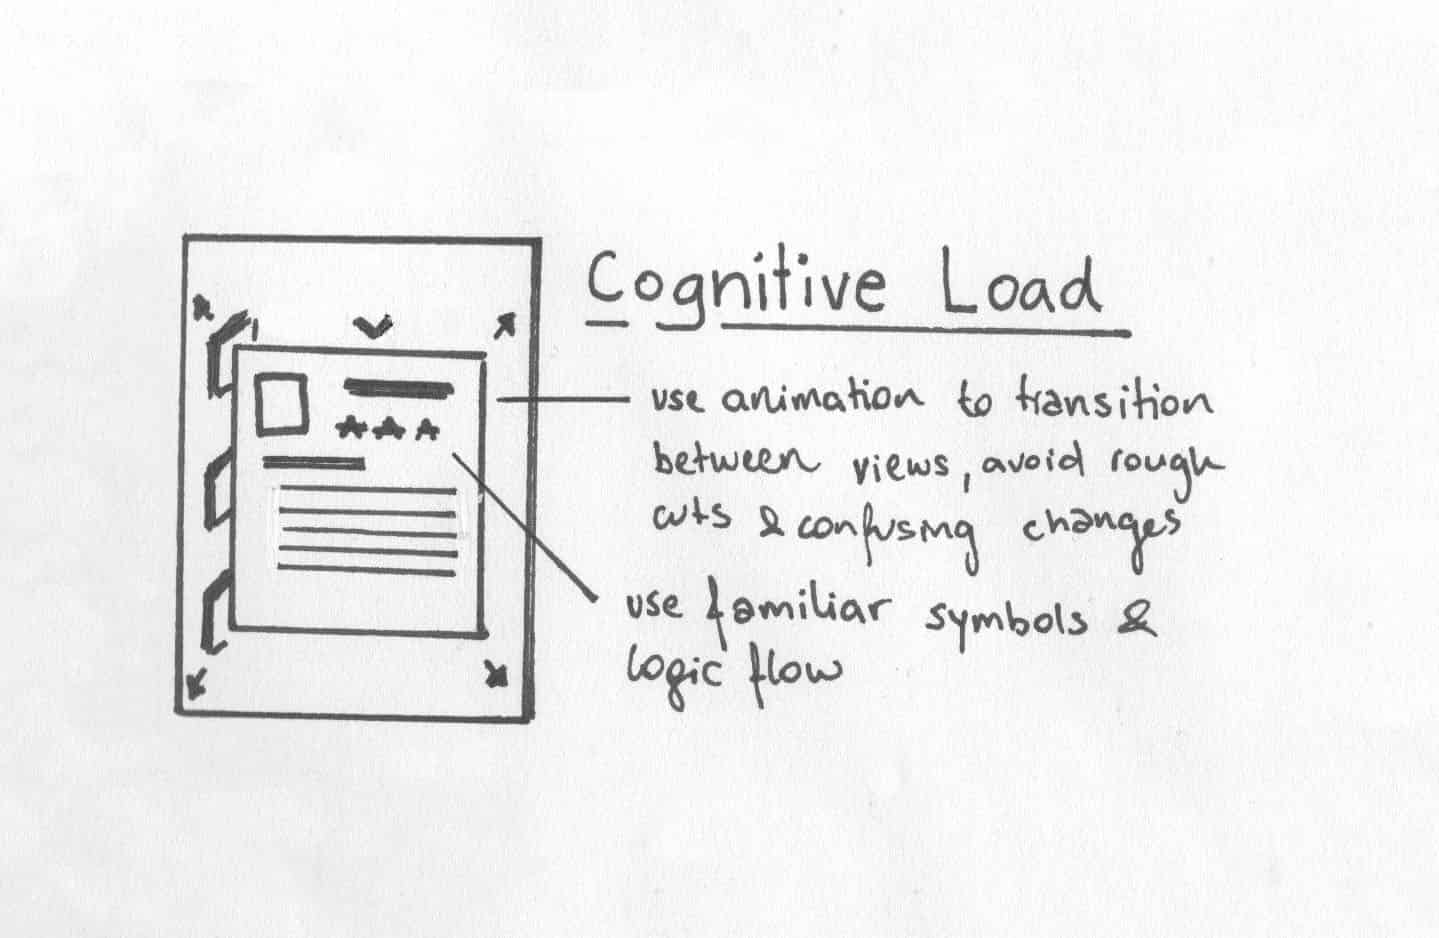 Cognitive Load
use animation to transition
between views, avoid rough
cuts & confusing changes
use familiar symbols &
logic flow